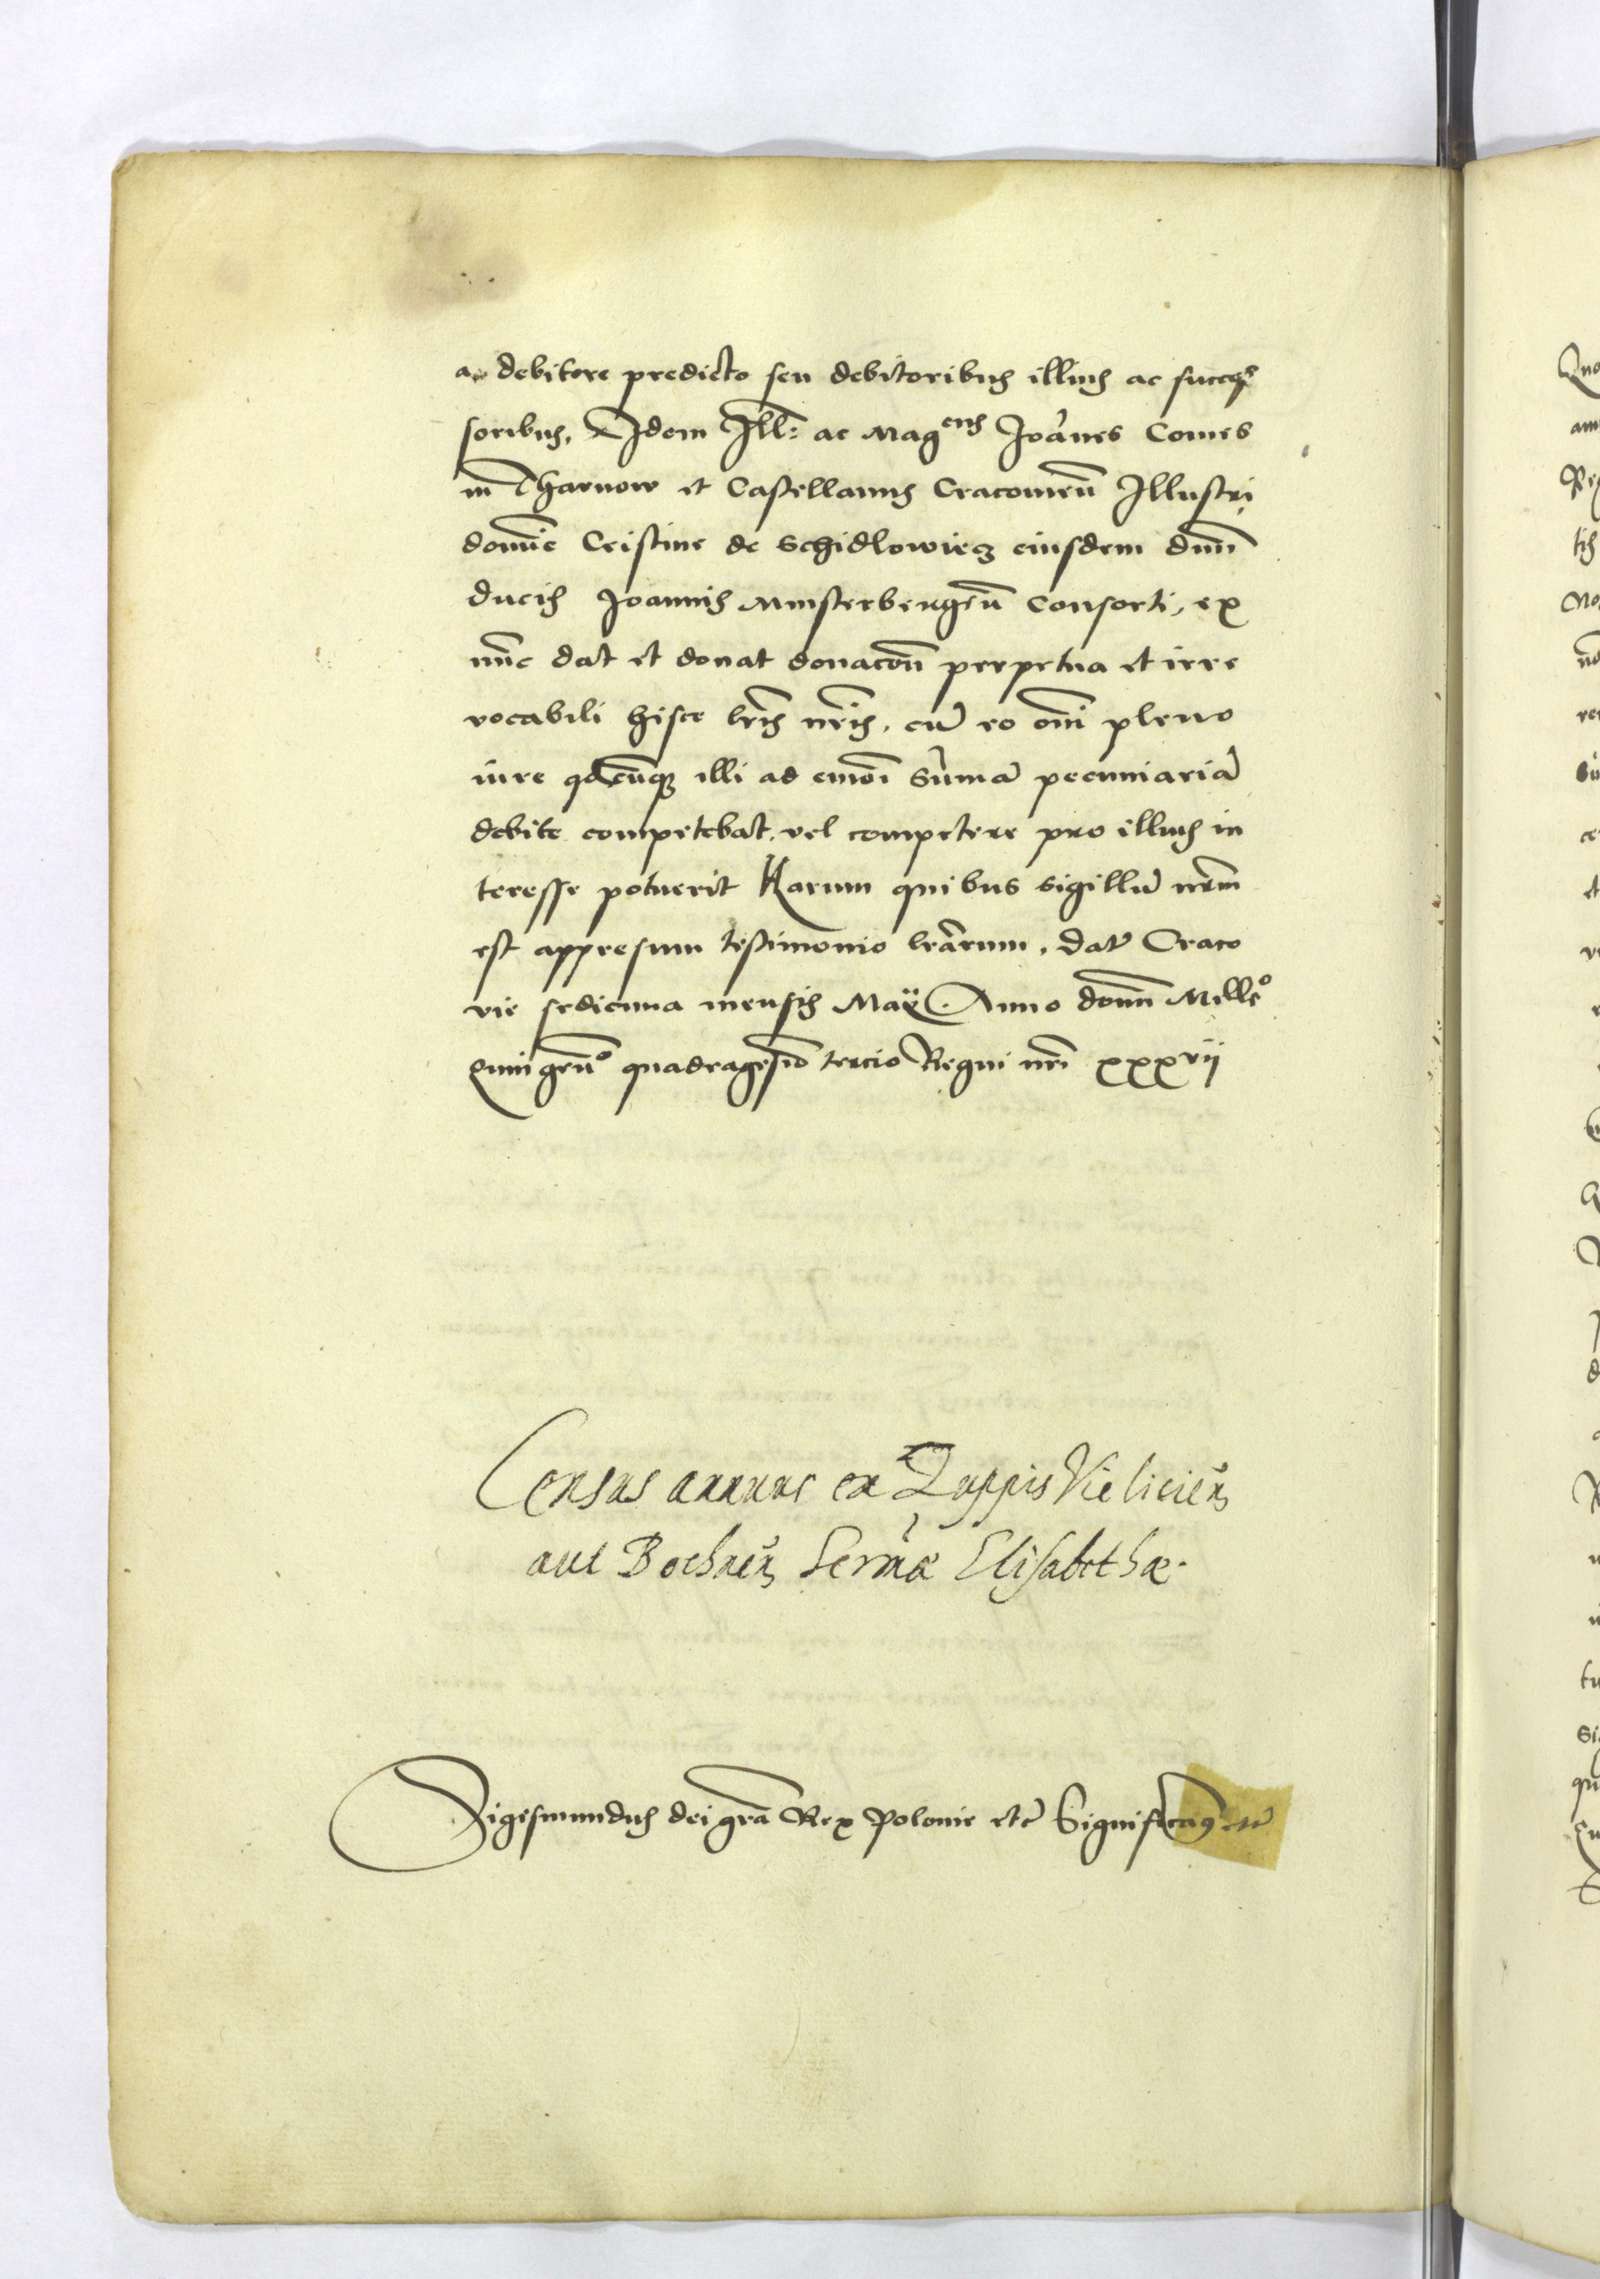 a debitore predicto seu debitoribus illius ac succes
soribus, Idem Ill: ac Mag^cus Joānes Comes
in Tharnow et Castellanus Cracovieñ Illustri
domīe Cristine de Schidlowiecz eiusdem dnī
ducis Joannis Munsterbergeñ Consorti, ex
nūc dat et donat donacōn perpetua et irre
vocabili hisce lrīs nrīs, cū eo omī pleno
iure qdcūq; illi ad eandē sūmā pecuniariā
debite competebat, vel competere pro illius in
teresse potuerit Harum quibus sigillū nrm̄
est appressum testimonio lrārum, dat̄ Craco
vie sedecima mensis Maÿ. Anno domī Mille^o
quingeñ^o quadragesīo tercio Regni nrī xxxvij
Census annuus ex Zuppis Vielicień
aut Bochneñ Sermae Elisabethæ.
Sigismundus dei grā Rex Polonie etc̄ Significamus etc̄